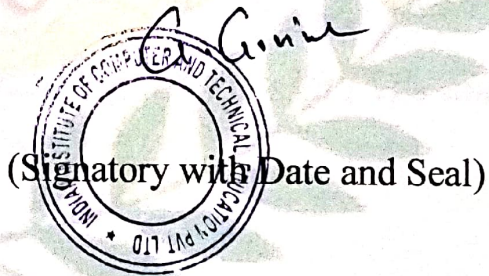 INDIAN INSTITUTE OF COMPUTER AND TECHNICAL EDUCATION PVT LTD
(Signatory with Date and Seal)